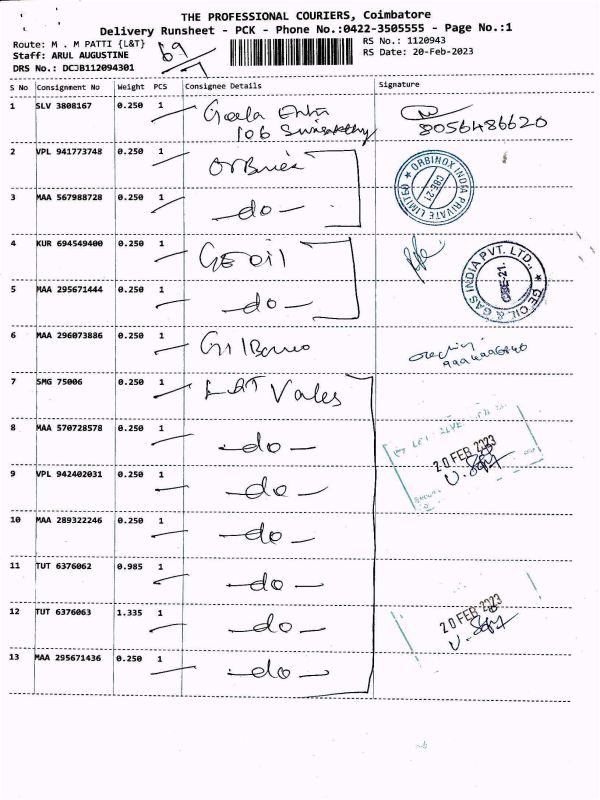 THE PROFESSIONAL COURIERS, Coimbatore
Delivery Runsheet - PCK - Phone No.:0422-3505555 - Page No.:1
Route: M . M PATTI {L&T}
Staff: ARUL AUGUSTINE
DRS No.: DCJB112094301
69
RS No.: 1120943
RS Date: 20-Feb-2023
S No Consignment No Weight PCS Consignee Details Signature
1 SLV 3808167 0.250 1
106
8056486620
2 VPL 941773748 0.250 1
ORBINOX INDIA PRIVATE LIMITED
CBE-21
3 MAA 567988728 0.250 1 -do-
4 KUR 694549400 0.250 1 GE oil
GE OIL & GAS INDIA PVT. LTD.,
CBE-21.
5 MAA 295671444 0.250 1 -do-
6 MAA 296073886 0.250 1
7 SMG 75006 0.250 1 L&T Valves
8 MAA 570728578 0.250 1 -do-
20 FEB 2023
9 VPL 942402031 0.250 1 -do-
10 MAA 289322246 0.250 1 -do-
11 TUT 6376062 0.985 1 -do-
12 TUT 6376063 1.335 1 -do-
20 FEB 2023
13 MAA 295671436 0.250 1 -do-